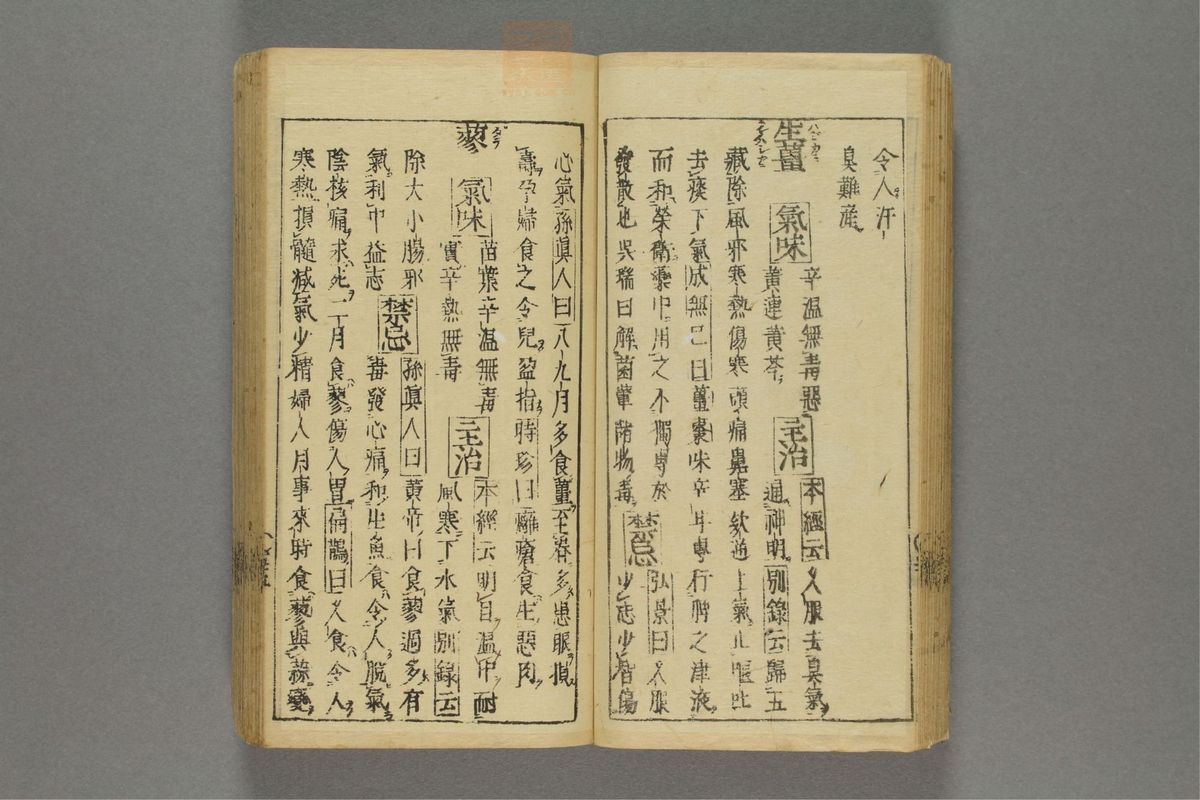 令人汗
臭難産
生薑 氣味 辛温無毒惡
黄連黄芩 主治 本經云久服去臭氣
通神明 別錄云歸五
藏除風邪寒熱傷寒頭痛鼻塞欬逆上氣止嘔吐
去痰下氣 成無已曰薑棗味辛甘專行脾之津液
而和榮衞藥中用之不獨專於
發散也吳瑞曰解菌蕈諸物毒 禁忌 弘景曰久服
少志少智傷
心氣 孫眞人曰八九月多食薑至春多患眼損
壽孕婦食之令兒盈指 時珍曰癰瘡食生惡肉
蓼 氣味 苗葉辛温無毒
實辛熱無毒 主治 本經云明目温中耐
風寒下水氣 別錄云
除大小腸邪
氣利中益志 禁忌 孫眞人曰黄帝曰食蓼過多有
毒發心痛和生魚食令人脱氣
陰核痛求死二月食蓼傷人胃 扁鵲曰久食令人
寒熱損髓減氣少精婦人月事來時食蓼與蒜變